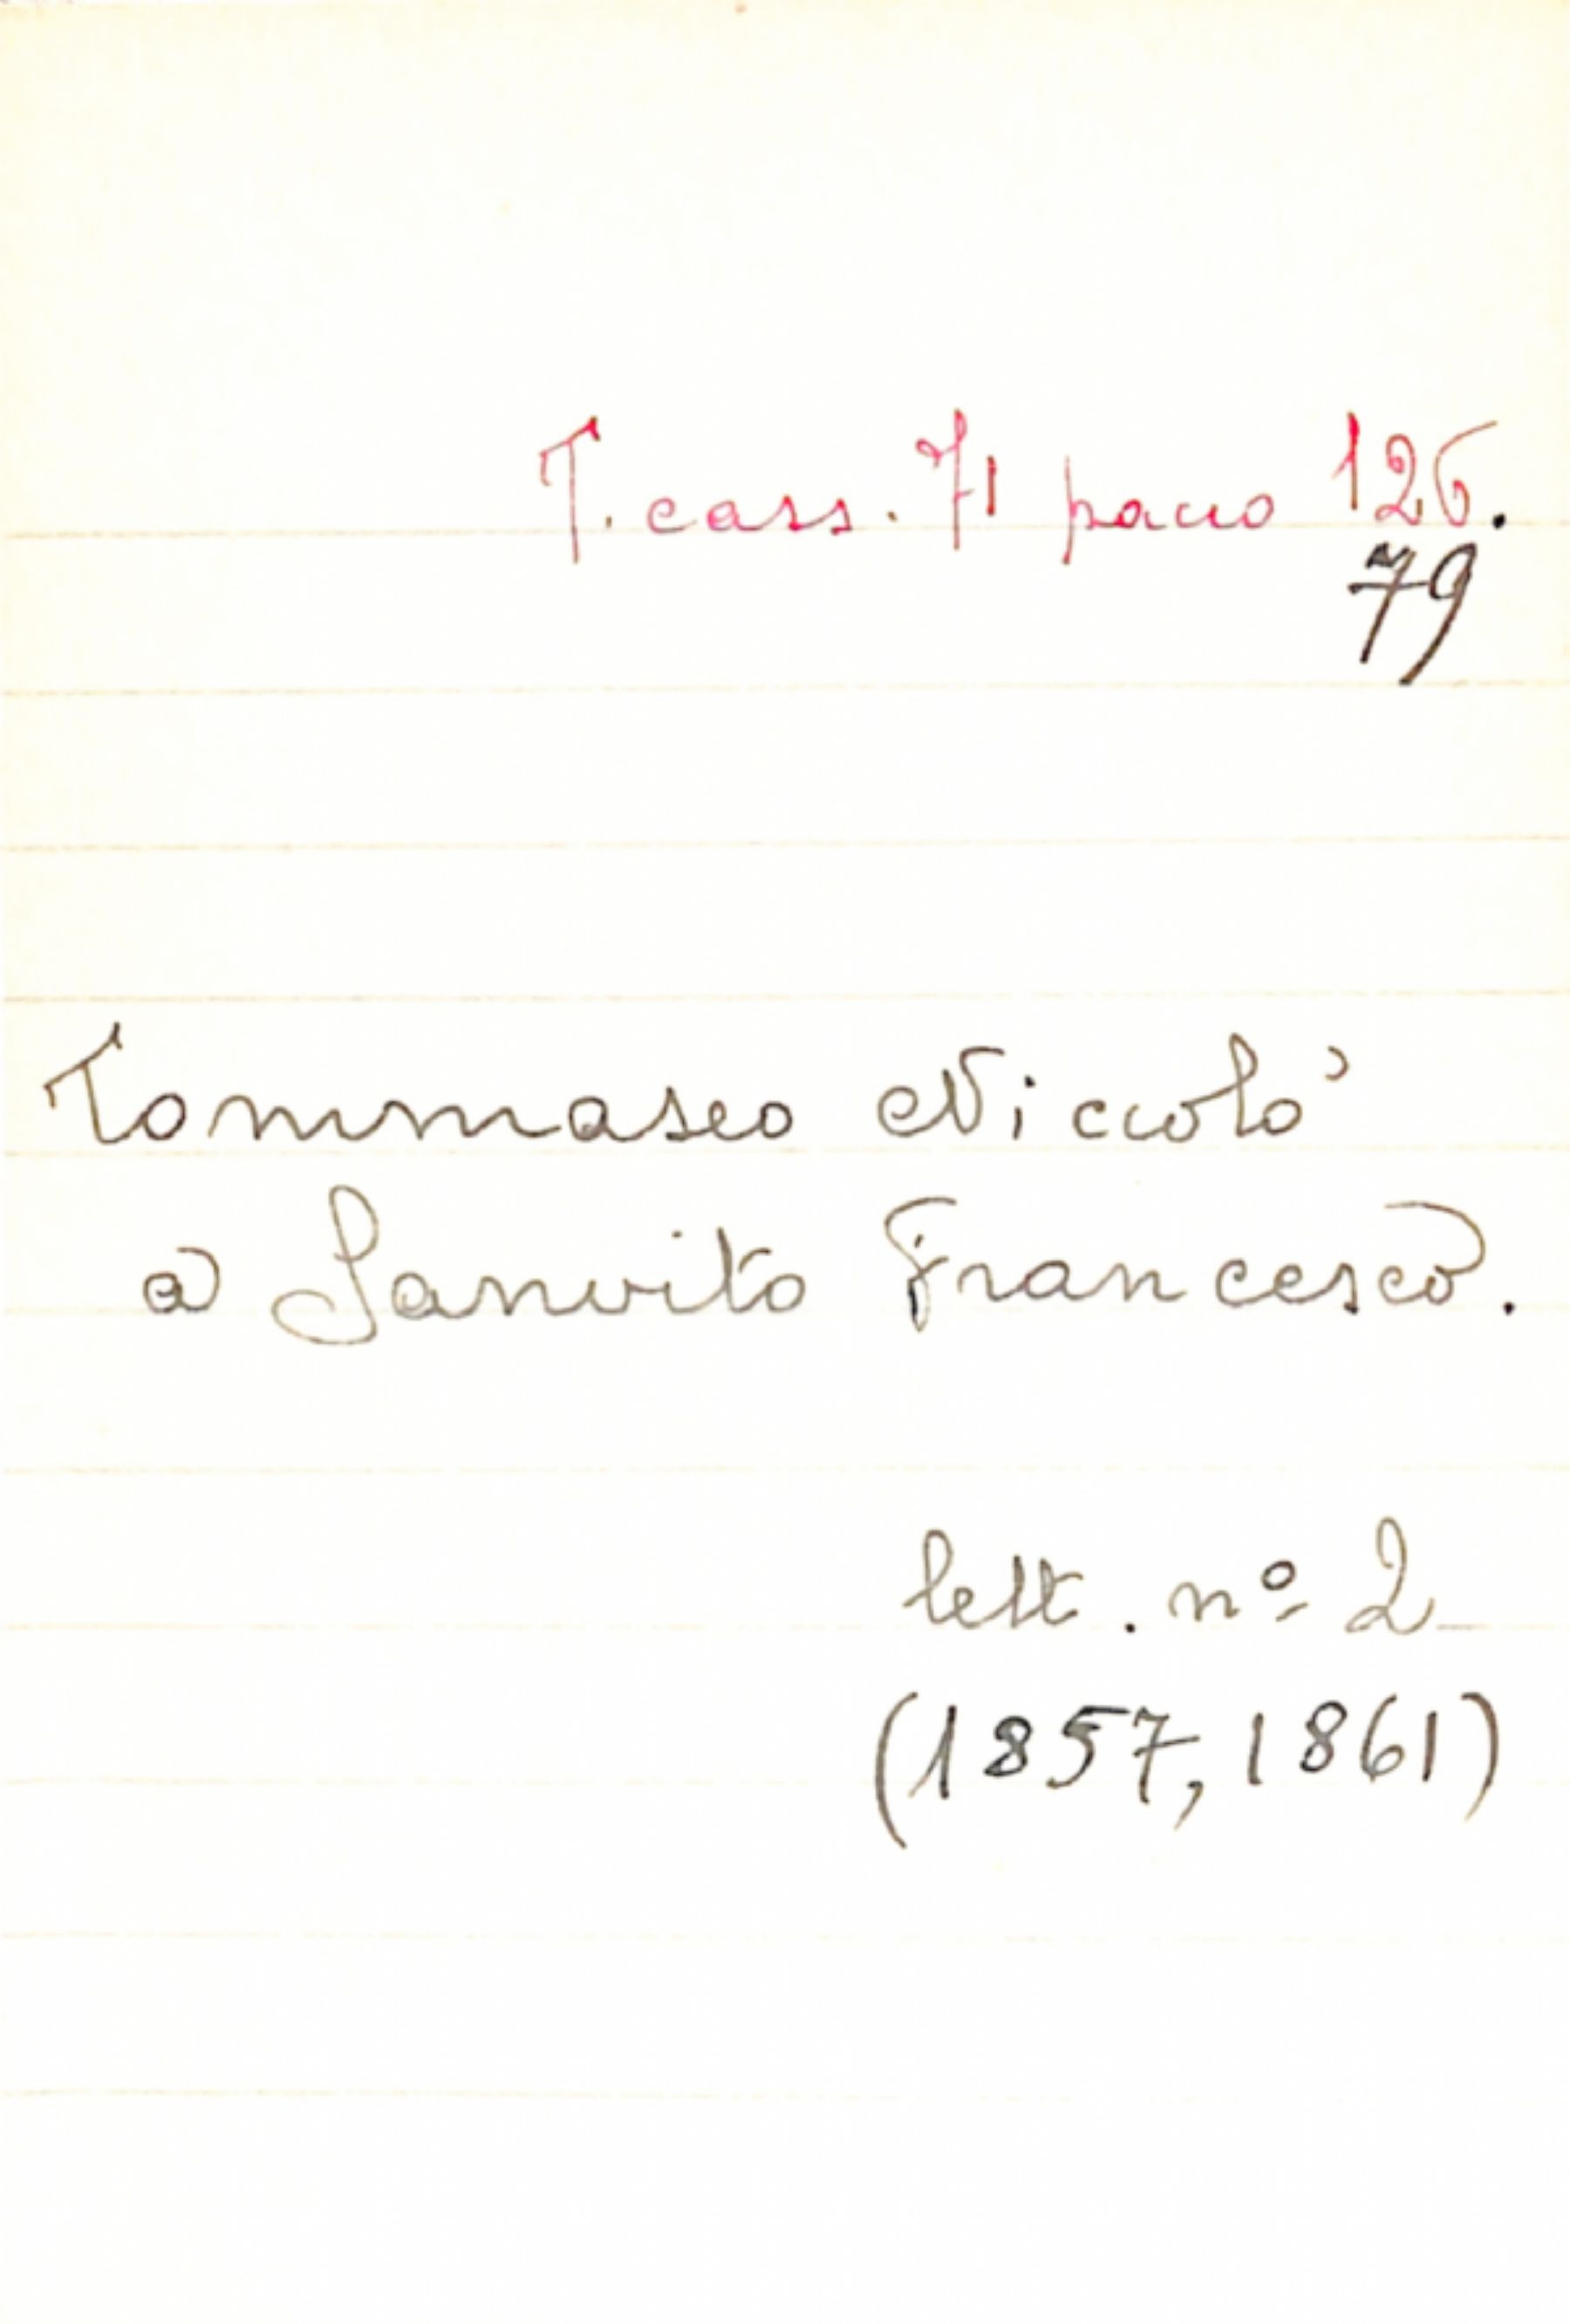 T. cass. 71 pacco 126.
79
Tommaseo Niccolò
a Sanvito Francesco.
lett. nº 2
(1857, 1861)